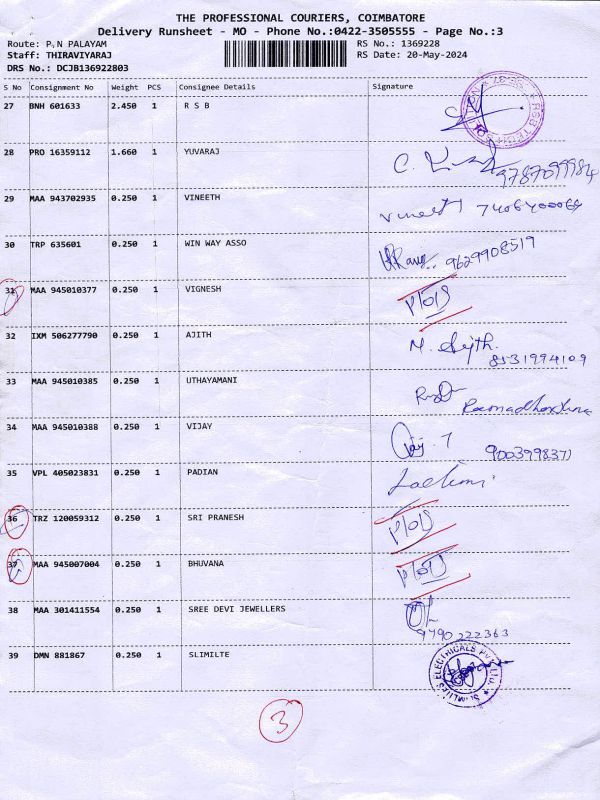 THE PROFESSIONAL COURIERS, COIMBATORE
Delivery Runsheet - MO - Phone No.:0422-3505555 - Page No.:3
Route: P.N PALAYAM RS No.: 1369228
Staff: THIRAVIYARAJ RS Date: 20-May-2024
DRS No.: DCJB136922803
S No Consignment No Weight PCS Consignee Details Signature
27 BNH 601633 2.450 1 R S B
28 PRO 16359112 1.660 1 YUVARAJ
9787099984
29 MAA 943702935 0.250 1 VINEETH Vineeth
30 TRP 635601 0.250 1 WIN WAY ASSO 9629908519
31 MAA 945010377 0.250 1 VIGNESH
32 IXM 506277790 0.250 1 AJITH M. Ajith.
8531994109
33 MAA 945010385 0.250 1 UTHAYAMANI
34 MAA 945010388 0.250 1 VIJAY
9003998371
35 VPL 405023831 0.250 1 PADIAN
36 TRZ 120059312 0.250 1 SRI PRANESH
37 MAA 945007004 0.250 1 BHUVANA
38 MAA 301411554 0.250 1 SREE DEVI JEWELLERS
9790222363
39 DMN 881867 0.250 1 SLIMILTE
3